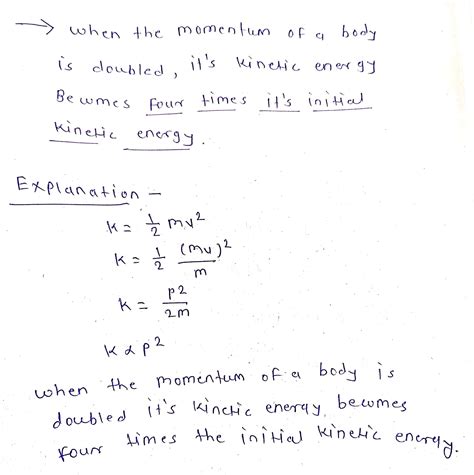 → when the momentum of a body
is doubled, it's kinetic energy
Becomes four times it's initial
kinetic energy.
Explanation –
k = 1/2 mv²
k = 1/2 (mv)²/m
k = p2/2m
k ∝ p²
when the momentum of a body is
doubled it's kinetic energy becomes
four times the initial kinetic energy.